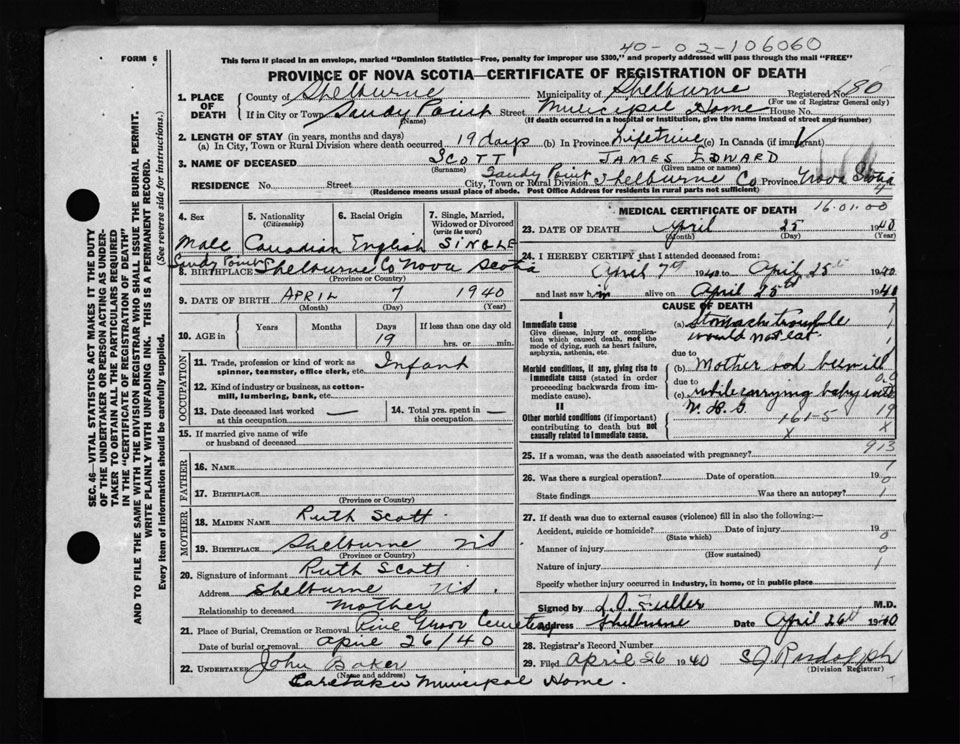 40-02-106060
FORM 6
This form if placed in an envelope, marked "Dominion Statistics—Free, penalty for improper use $300," and properly addressed will pass through the mail "FREE"
PROVINCE OF NOVA SCOTIA—CERTIFICATE OF REGISTRATION OF DEATH
1. PLACE OF DEATH
County of Shelburne Municipality of Shelburne Registered No. 180
(For use of Registrar General only)
If in City or Town Sandy Point Street Municipal Home House No.
(Name) (If death occurred in a hospital or institution, give the name instead of street and number)
2. LENGTH OF STAY (in years, months and days)
(a) In City, Town or Rural Division where death occurred 19 days (b) In Province Lifetime (c) In Canada (if immigrant)
3. NAME OF DECEASED SCOTT JAMES EDWARD
(Surname) (Given name or names)
RESIDENCE No. Street City, Town or Rural Division Sandy Point Shelburne Co Province Nova Scotia
(Residence means usual place of abode. Post Office Address for residents in rural parts not sufficient)
4. Sex Male
5. Nationality (Citizenship) Canadian
6. Racial Origin English
7. Single, Married, Widowed or Divorced (write the word) SINGLE
Sandy Point
8. BIRTHPLACE Shelburne Co Nova Scotia
(Province or Country)
9. DATE OF BIRTH APRIL 7 1940
(Month) (Day) (Year)
10. AGE in Years Months Days 19 If less than one day old
hrs. or min.
OCCUPATION
11. Trade, profession or kind of work as spinner, teamster, office clerk, etc. Infant
12. Kind of industry or business, as cotton-mill, lumbering, bank, etc.
13. Date deceased last worked at this occupation —
14. Total yrs. spent in this occupation —
15. If married give name of wife or husband of deceased
FATHER
16. NAME
17. BIRTHPLACE
(Province or Country)
MOTHER
18. MAIDEN NAME Ruth Scott
19. BIRTHPLACE Shelburne N.S
(Province or Country)
20. Signature of informant Ruth Scott
Address Shelburne N.S.
Relationship to deceased Mother
21. Place of Burial, Cremation or Removal Pine Grove Cemetery
Date of burial or removal April 26/40
22. UNDERTAKER John Baker
(Name and address)
Caretaker Municipal Home.
MEDICAL CERTIFICATE OF DEATH 16.01.00
23. DATE OF DEATH April 25 1940
(Month) (Day) (Year)
24. I HEREBY CERTIFY that I attended deceased from:
April 7th 1940 to April 25th 1940
and last saw him alive on April 25th 1940
CAUSE OF DEATH
I
Immediate cause
Give disease, injury or complication which caused death, not the mode of dying, such as heart failure, asphyxia, asthenia, etc.
(a) Stomach trouble
would not eat
due to
Morbid conditions, if any, giving rise to immediate cause (stated in order proceeding backwards from immediate cause).
(b) Mother had been ill
due to
(c) while carrying baby with
II
Other morbid conditions (important) contributing to death but not causally related to immediate cause.
161-5
X X
25. If a woman, was the death associated with pregnancy? 913
26. Was there a surgical operation? Date of operation 19
State findings Was there an autopsy?
27. If death was due to external causes (violence) fill in also the following:—
Accident, suicide or homicide? Date of injury 19
(State which)
Manner of injury
(How sustained)
Nature of injury
Specify whether injury occurred in industry, in home, or in public place
Signed by L.O. Fuller M.D.
Address Shelburne Date April 26 1940
28. Registrar's Record Number
29. Filed April 26 1940 S.J. Randolph
(Division Registrar)
SEC. 46—VITAL STATISTICS ACT MAKES IT THE DUTY
OF THE UNDERTAKER OR PERSON ACTING AS UNDER-
TAKER TO OBTAIN ALL THE PARTICULARS REQUIRED
IN THE "CERTIFICATE OF REGISTRATION OF DEATH"
AND TO FILE THE SAME WITH THE DIVISION REGISTRAR WHO SHALL ISSUE THE BURIAL PERMIT.
WRITE PLAINLY WITH UNFADING INK. THIS IS A PERMANENT RECORD.
Every item of information should be carefully supplied. (See reverse side for instructions.)